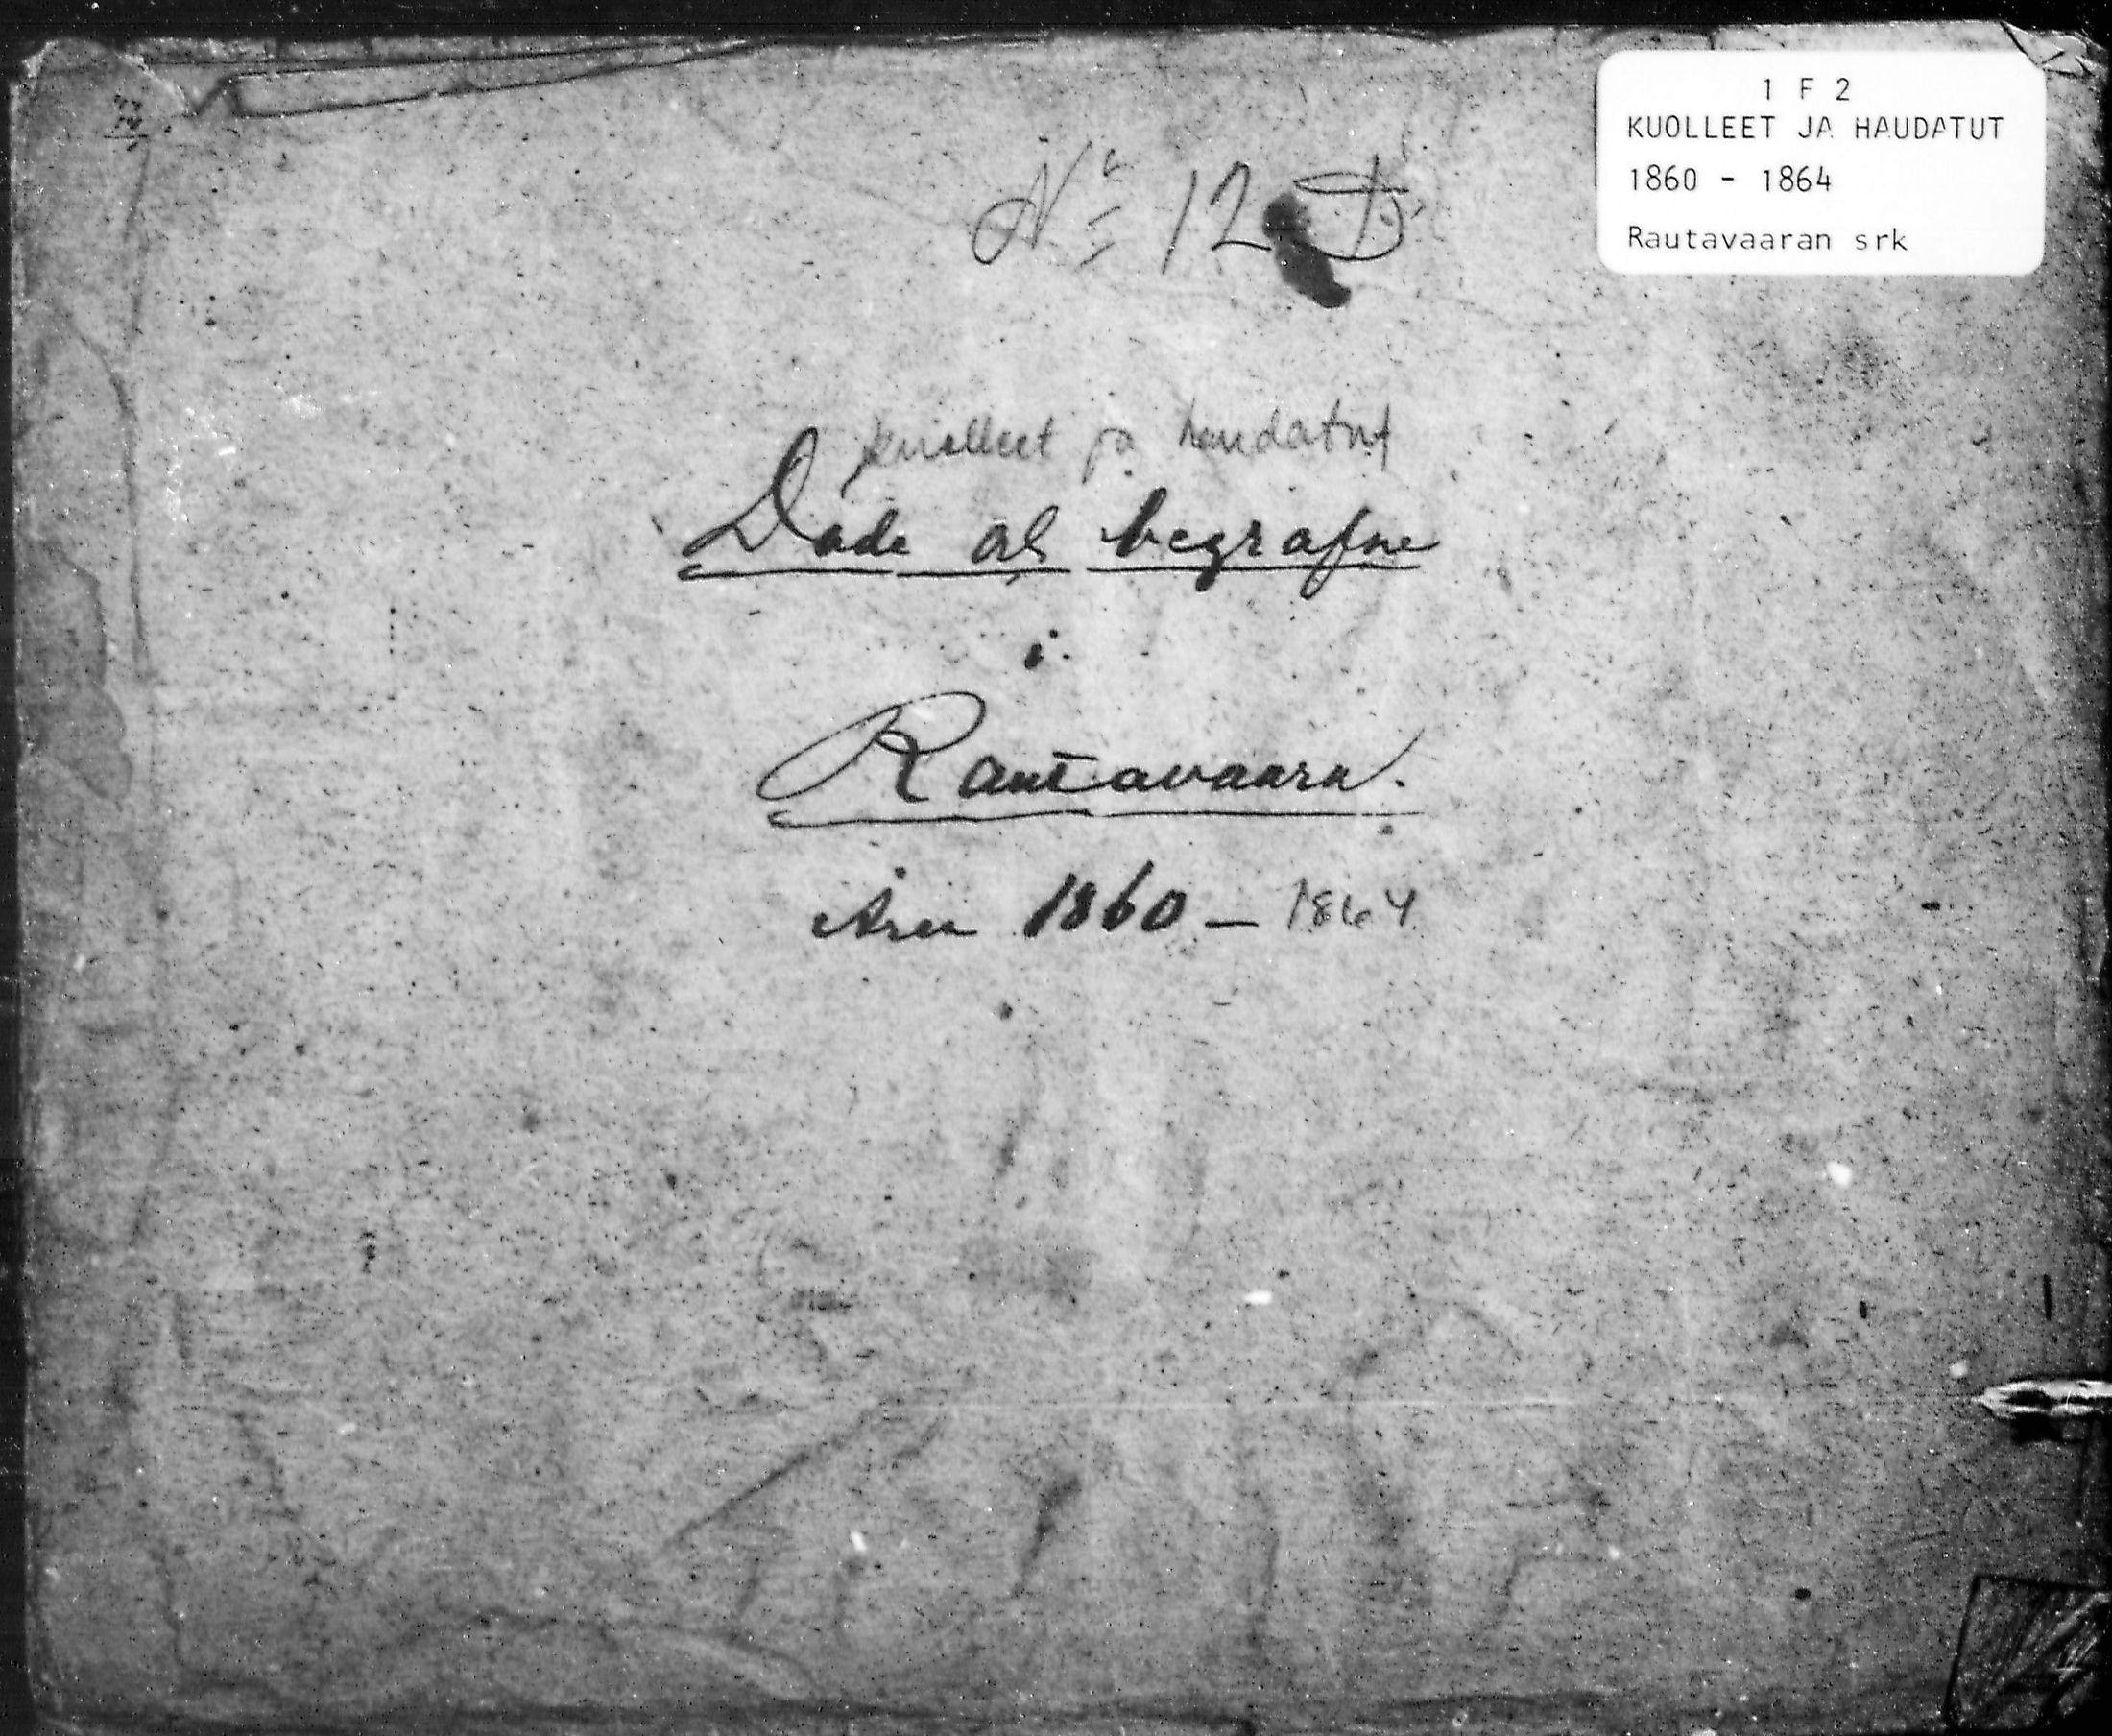 1 F 2
KUOLLEET JA HAUDATUT
1860 - 1864
Rautavaaran srk
No 12 D
kuolleet ja haudatut
Döde och begrafne
i
Rautavaara.
Åren 1860 – 1864